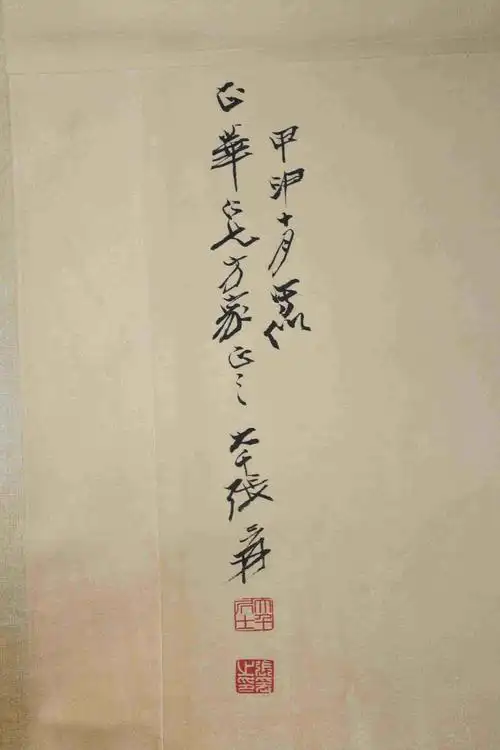 甲申十月寫似
正華仁兄方家正之 大千張爰
大千居士
張爰之印